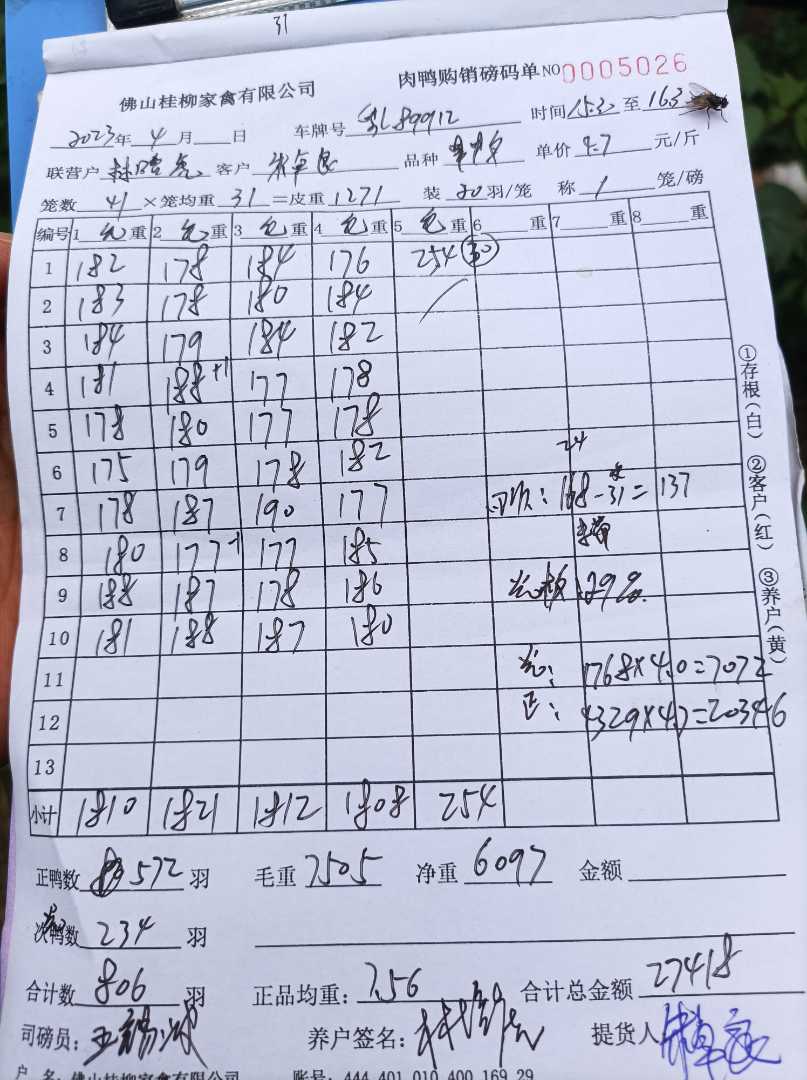 31
佛山桂柳家禽有限公司 肉鸭购销磅码单 NO 0005026
2023年 4 月 日 车牌号 89912 时间 153 至 163
联营户 客户 品种 单价 4.7 元/斤
笼数 41 ×笼均重 31 =皮重 1271 装 20 羽/笼 称 1 笼/磅
编号 1 毛 重 2 毛 重 3 毛 重 4 毛 重 5 毛 重 6 重 7 重 8 重
1 182 178 184 176 254 (30)
2 183 178 180 184
3 184 179 184 182
4 181 188 +1 177 178
5 178 180 177 178
6 175 179 178 182 24
7 178 187 190 177 168-31=137
8 180 177 -1 177 185
9 188 187 178 186 298
10 181 188 187 180
11 1768×4.0=7072
12 正: 4329×4.7=20346
13
小计 1810 1821 1812 1808 254
①存根(白) ②客户(红) ③养户(黄)
正鸭数 572 羽 毛重 7505 净重 6097 金额
次鸭数 234 羽
合计数 806 羽 正品均重: 7.56 合计总金额 27418
司磅员: 养户签名: 提货人
户 名: 佛山桂柳家禽有限公司 账号: 444 401 010 400 169 29